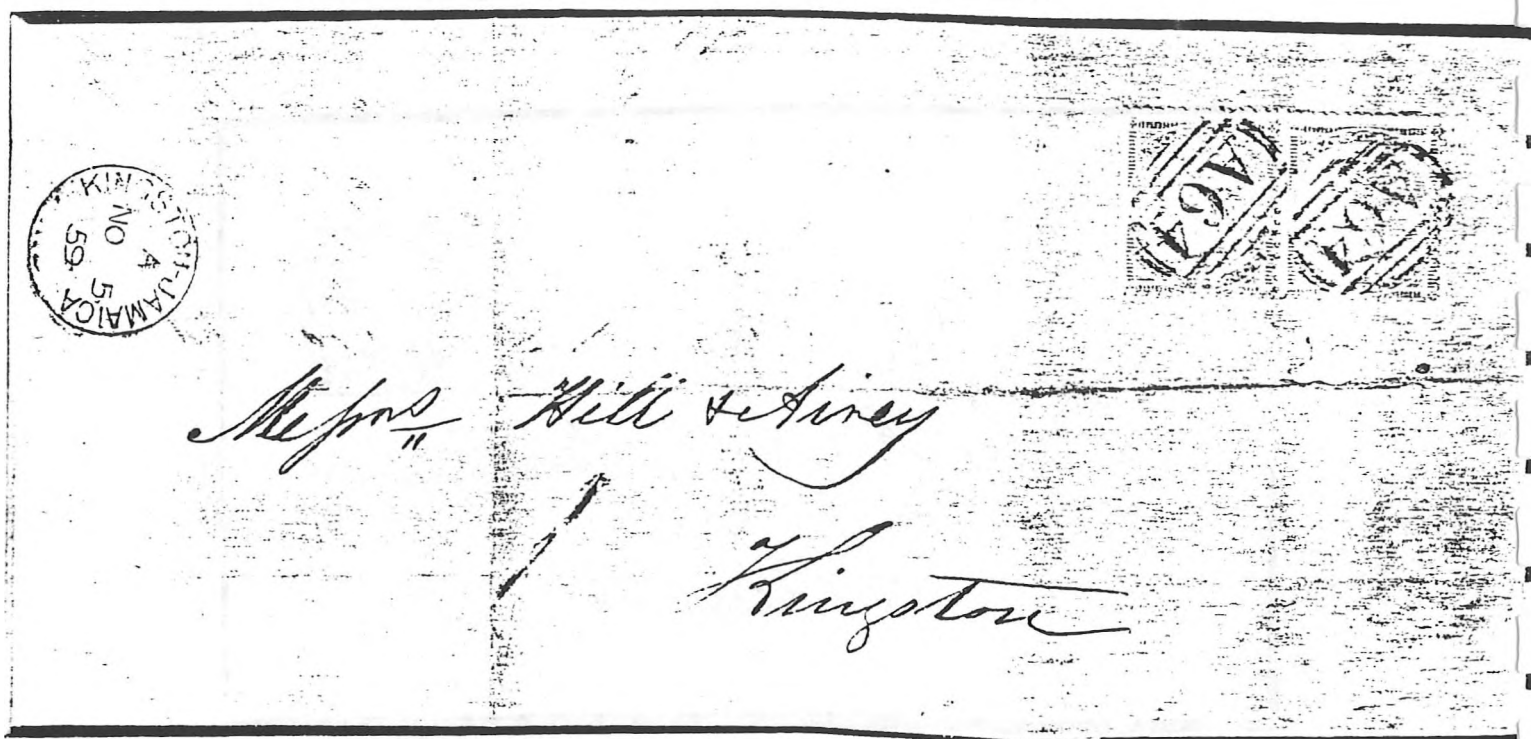 KINGSTON-JAMAICA
A
NO 5
59
A64
A64
Messrs Hill & Airey
Kingston